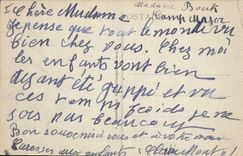 Madame Bouk
POSTCARD
Chère Madame Camp Major
je pense que tout le monde va
bien chez vous. Chez moi
les enfants vont bien
ayant été grippé et vu
ces temps froids je ne
sors pas beaucoup
Bon souvenir vous et votre mari
Caresses aux enfants